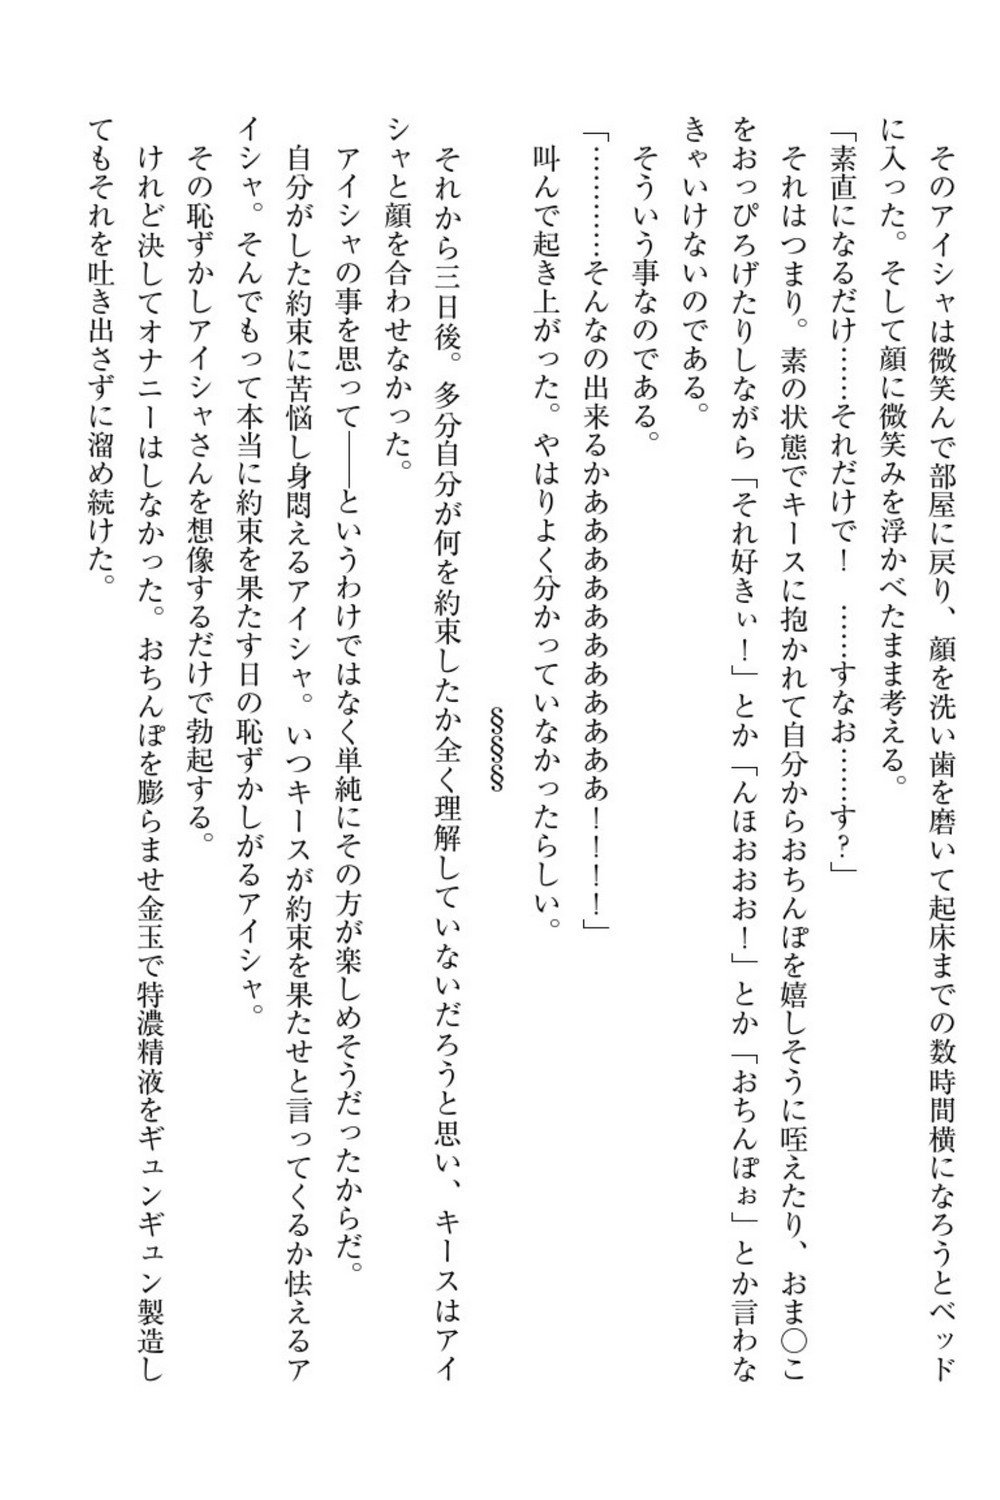 そのアイシャは微笑んで部屋に戻り、顔を洗い歯を磨いて起床までの数時間横になろうとベッド
に入った。そして顔に微笑みを浮かべたまま考える。
「素直になるだけ……それだけで！　……すなお……す？」
　それはつまり。素の状態でキースに抱かれて自分からおちんぽを嬉しそうに咥えたり、おま〇こ
をおっぴろげたりしながら「それ好きぃ！」とか「んほおおお！」とか「おちんぽぉ」とか言わな
きゃいけないのである。
　そういう事なのである。
「…………そんなの出来るかあああああああああああ！！！！」
　叫んで起き上がった。やはりよく分かっていなかったらしい。
§§§§
　それから三日後。多分自分が何を約束したか全く理解していないだろうと思い、キースはアイ
シャと顔を合わせなかった。
　アイシャの事を思って――というわけではなく単純にその方が楽しめそうだったからだ。
　自分がした約束に苦悩し身悶えるアイシャ。いつキースが約束を果たせと言ってくるか怯えるア
イシャ。そんでもって本当に約束を果たす日の恥ずかしがるアイシャ。
　その恥ずかしアイシャさんを想像するだけで勃起する。
　けれど決してオナニーはしなかった。おちんぽを膨らませ金玉で特濃精液をギュンギュン製造し
てもそれを吐き出さずに溜め続けた。